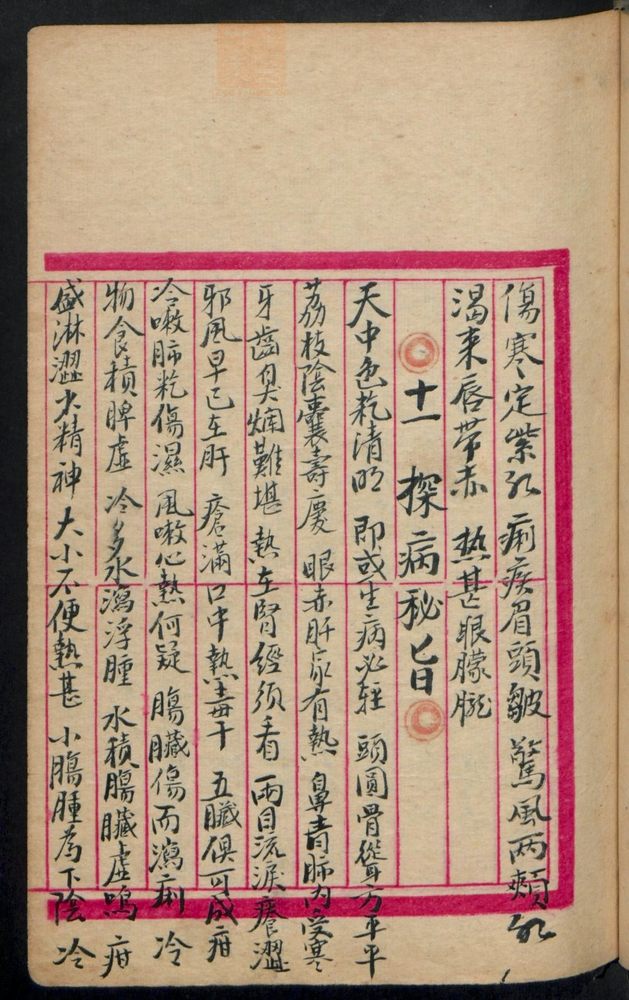 傷寒定紫紅 痢疾眉頭皺 驚風两頰紅
渴来唇帶赤 熱甚眼朦朧
十一 探病秘旨
天中色乾清明 即或生病必轻 頭圓骨聳方平平
荔枝陰囊壽慶 眼赤肝家有熱 鼻青肺内受寒
牙齒臭爛難堪 熱在腎經须看 両目流淚癢澀
邪風早已在肝 瘡滿口中熱毒干 五臟俱可成疳
冷嗽肺乾傷濕 風嗽心熱何疑 腸臟傷而瀉痢 冷
物食積脾虛 冷多水瀉浮腫 水積腸臟虛鳴 疳
盛淋澀少精神 大小不便熱甚 小腸腫為下陰 冷